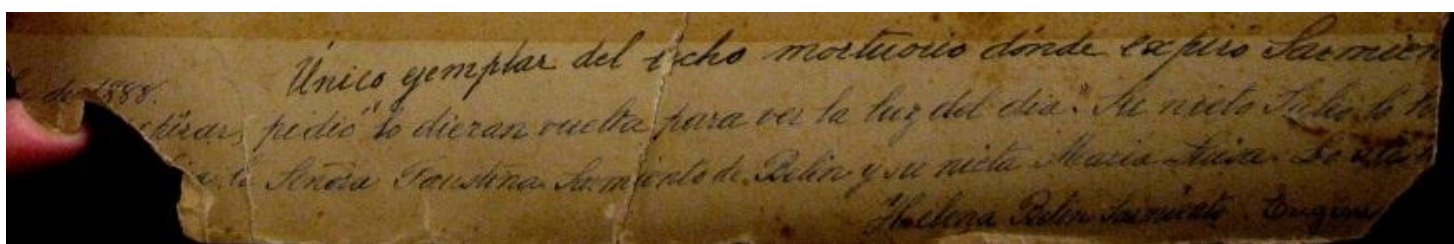 Único ejemplar del lecho mortuorio dónde expiró Sarmien
de 1888.
pirar, pidió "lo dieran vuelta para ver la luz del dia". Su nieto Julio lo
la Señora Faustina Sarmiento de Belin y su nieta Maria Luisa. Lo
Helena Belin Sarmiento Eugeni